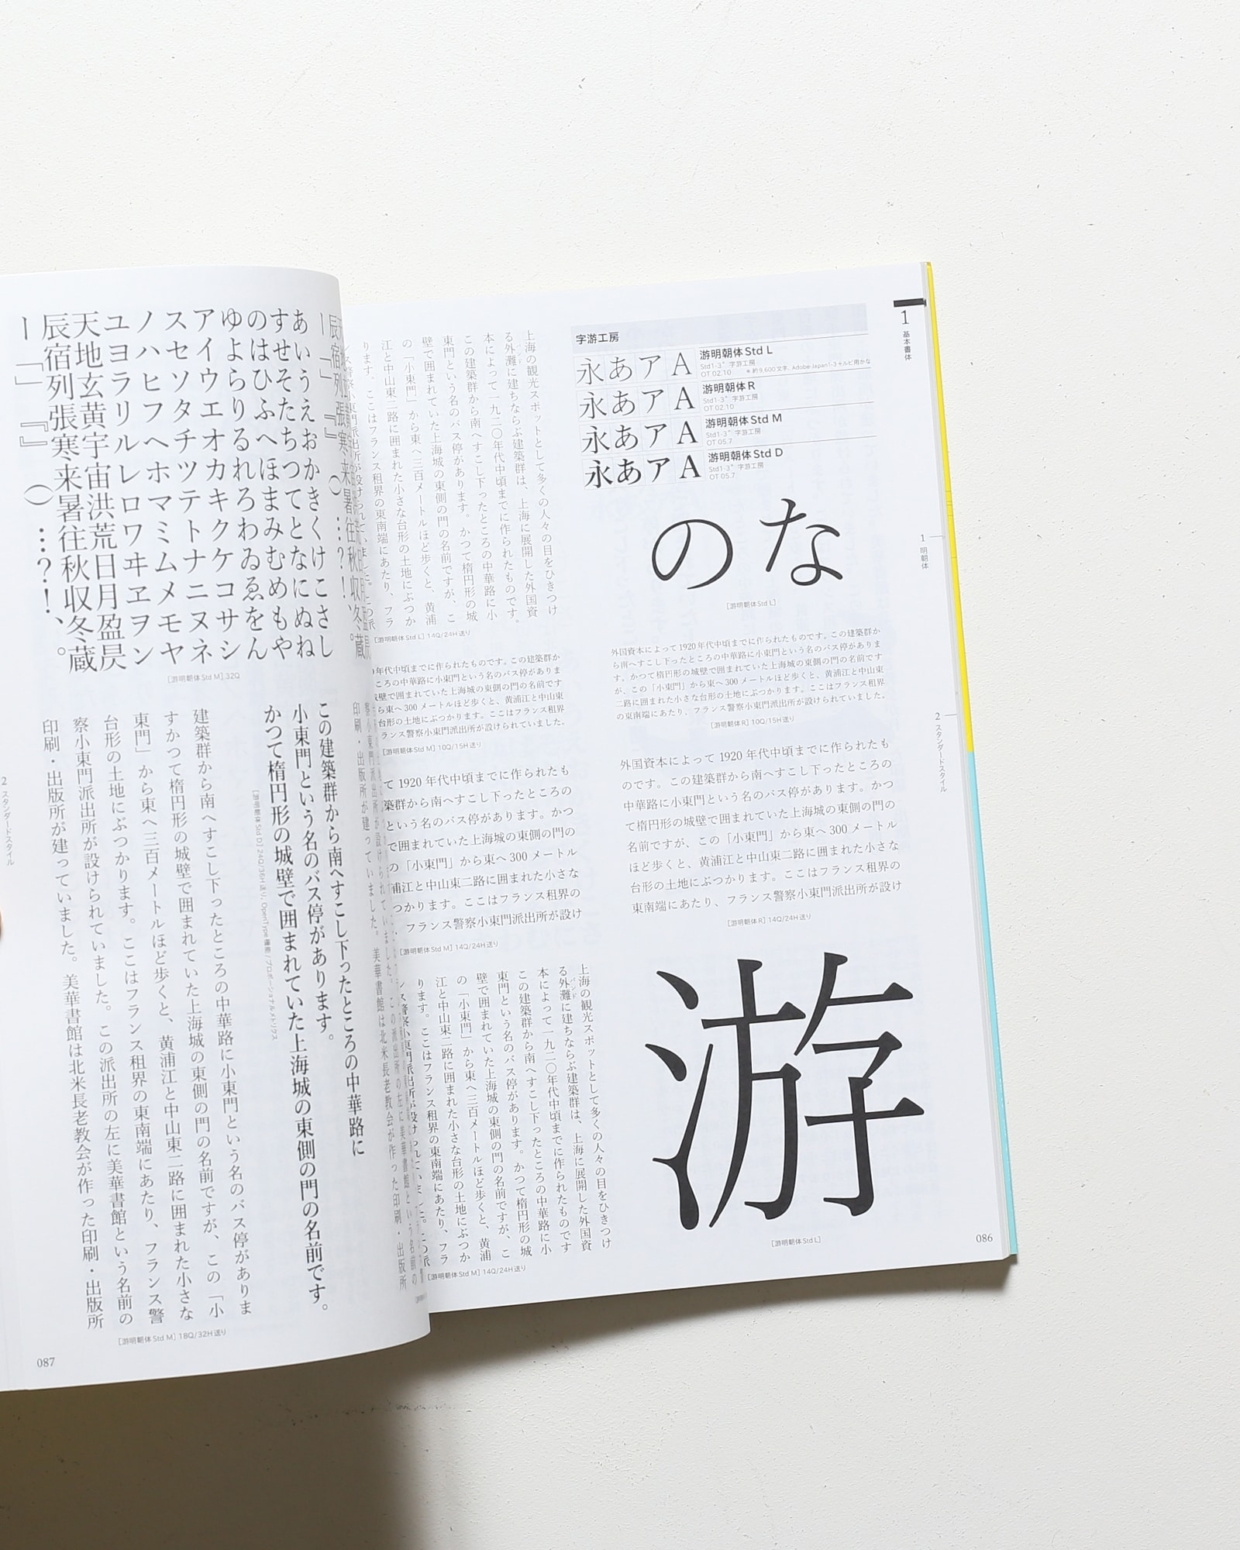 1
基本書体
1 明朝体
2 スタンダードスタイル
字游工房
永あアA
游明朝体 Std L
Std1-3* 字游工房
OT 02.10
永あアA
游明朝体 R
Std1-3* 字游工房
OT 02.10
永あアA
游明朝体 Std M
Std1-3* 字游工房
OT 05.7
永あアA
游明朝体 Std D
Std1-3* 字游工房
OT 05.7
のな
[游明朝体 Std L]
上海の観光スポットとして多くの人々の目をひきつけ
る外灘に建ちならぶ建築群は、上海に展開した外国資
本によって一九二〇年代中頃までに作られたものです。
この建築群から南へすこし下ったところの中華路に小
東門という名のバス停があります。かつて楕円形の城
壁で囲まれていた上海城の東側の門の名前ですが、こ
の「小東門」から東へ三百メートルほど歩くと、黄浦
江と中山東二路に囲まれた小さな台形の土地にぶつか
ります。ここはフランス租界の東南端にあたり、フラ
[游明朝体 Std L] 14Q/24H送り
外国資本によって1920年代中頃までに作られたものです。この建築群か
ら南へすこし下ったところの中華路に小東門という名のバス停がありま
す。かつて楕円形の城壁で囲まれていた上海城の東側の門の名前です
が、この「小東門」から東へ300メートルほど歩くと、黄浦江と中山東
二路に囲まれた小さな台形の土地にぶつかります。ここはフランス租界
の東南端にあたり、フランス警察小東門派出所が設けられていました。
[游明朝体 R] 10Q/15H送り
年代中頃までに作られたものです。この建築群か
ころの中華路に小東門という名のバス停がありま
壁で囲まれていた上海城の東側の門の名前です
ら東へ300メートルほど歩くと、黄浦江と中山東
台形の土地にぶつかります。ここはフランス租界
ランス警察小東門派出所が設けられていました。
[游明朝体 Std M] 10Q/15H送り
外国資本によって 1920 年代中頃までに作られたも
のです。この建築群から南へすこし下ったところの
中華路に小東門という名のバス停があります。かつ
て楕円形の城壁で囲まれていた上海城の東側の門の
名前ですが、この「小東門」から東へ 300 メートル
ほど歩くと、黄浦江と中山東二路に囲まれた小さな
台形の土地にぶつかります。ここはフランス租界の
東南端にあたり、フランス警察小東門派出所が設け
[游明朝体 R] 14Q/24H送り
て 1920 年代中頃までに作られたも
築群から南へすこし下ったところの
という名のバス停があります。かつ
で囲まれていた上海城の東側の門の
の「小東門」から東へ 300 メートル
浦江と中山東二路に囲まれた小さな
つかります。ここはフランス租界の
フランス警察小東門派出所が設け
[游明朝体 Std M] 14Q/24H送り
游
[游明朝体 Std L]
上海の観光スポットとして多くの人々の目をひきつけ
る外灘に建ちならぶ建築群は、上海に展開した外国資
本によって一九二〇年代中頃までに作られたものです
この建築群から南へすこし下ったところの中華路に小
東門という名のバス停があります。かつて楕円形の城
壁で囲まれていた上海城の東側の門の名前ですが、こ
の「小東門」から東へ三百メートルほど歩くと、黄浦
江と中山東二路に囲まれた小さな台形の土地にぶつか
ります。ここはフランス租界の東南端にあたり、フラ
[游明朝体 Std M] 14Q/24H送り
086
あいうえおかきくけこさし
すせそたちつてとなにぬね
のはひふへほまみむめもや
ゆよらりるれろわゐゑをん
アイウエオカキクケコサシ
スセソタチツテトナニヌネ
ノハヒフヘホマミムメモヤ
ユヨラリルレロワヰヱヲン
天地玄黄宇宙洪荒日月盈昃
辰宿列張寒来暑往秋収冬蔵
ー「」『』()…?!、。
[游明朝体 Std M] 32Q
この建築群から南へすこし下ったところの中華路に
小東門という名のバス停があります。
かつて楕円形の城壁で囲まれていた上海城の東側の門の名前です。
建築群から南へすこし下ったところの中華路に小東門という名のバス停がありま
すかつて楕円形の城壁で囲まれていた上海城の東側の門の名前ですが、この「小
東門」から東へ三百メートルほど歩くと、黄浦江と中山東二路に囲まれた小さな
台形の土地にぶつかります。ここはフランス租界の東南端にあたり、フランス警
察小東門派出所が設けられていました。この派出所の左に美華書館という名前の
印刷・出版所が建っていました。美華書館は北米長老教会が作った印刷・出版所
[游明朝体 Std M] 18Q/32H送り
2 スタンダードスタイル
087